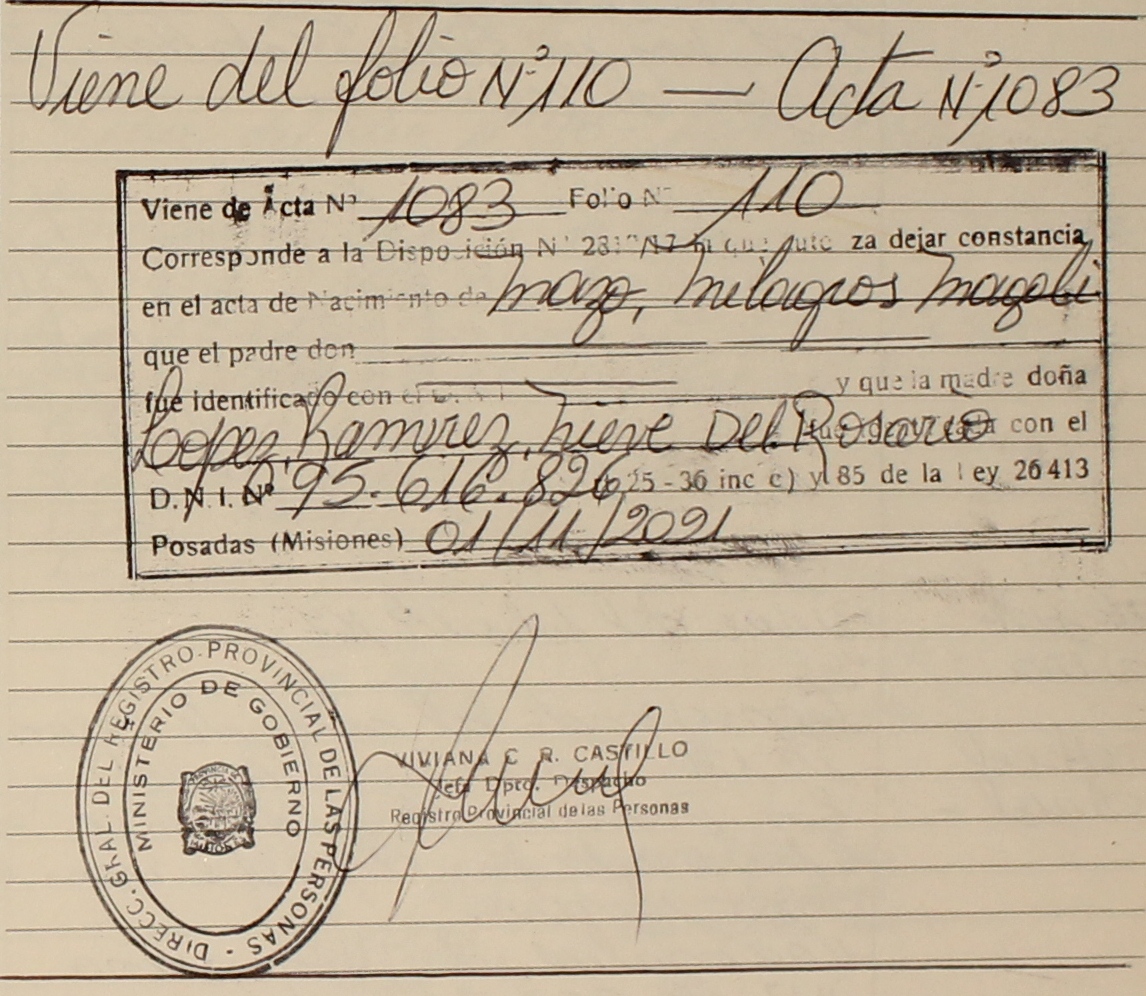 Viene del folio Nº 110 — Acta Nº 1083
Viene de Acta Nº 1083 Folio Nº 110
Corresponde a la Disposición Nº 281 /17 za dejar constancia
en el acta de Nacimiento de Mazo, Milagros Magali
que el padre don
fue identificado con el D. N. I. y que la madre doña
Lopez Ramirez, Nieve Del Rosario con el
D.N.I. Nº 95.616.826 25 - 36 inc c) y 85 de la Ley 26413
Posadas (Misiones) 01/11/2021
DIRECC. GRAL. DEL REGISTRO PROVINCIAL DE LAS PERSONAS -
MINISTERIO DE GOBIERNO
VIVIANA C. R. CASTILLO
Jefa Dpto. Despacho
Registro Provincial de las Personas